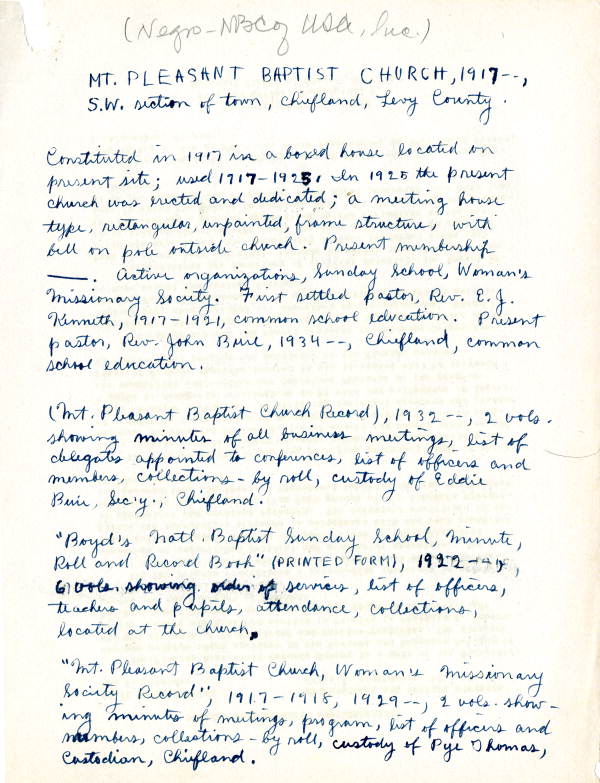 (Negro-NBC of USA, Inc.)
MT. PLEASANT BAPTIST CHURCH, 1917--,
S.W. section of town, Chiefland, Levy County.
Constituted in 1917 in a boxed house located on
present site; used 1717-1925. In 1925 the present
church was erected and dedicated; a meeting house
type, rectangular, unpainted, frame structure, with
bell on pole outside church. Present membership
——. Active organizations, Sunday School, Woman's
Missionary Society. First settled pastor, Rev. E. J.
Kenneth, 1917-1921, common school education. Present
pastor, Rev. John Buie, 1934--, Chiefland, common
school education.
(Mt. Pleasant Baptist Church Record), 1932--, 2 vols.
showing minutes of all business meetings, list of
delegates appointed to conferences, list of officers and
members, collections-by roll, custody of Eddie
Buie, Sec'y., Chiefland.
"Boyd's Natl. Baptist Sunday School, Minute,
Roll and Record Book" (PRINTED FORM), 1922--,
6 vols. showing order of services, list of officers,
teachers and pupils, attendance, collections,
located at the church.
"Mt. Pleasant Baptist Church, Woman's Missionary
Society Record", 1917-1918, 1929--, 2 vols. show-
ing minutes of meetings, program, list of officers and
members, collections-by roll, custody of Pye Thomas,
Custodian, Chiefland.